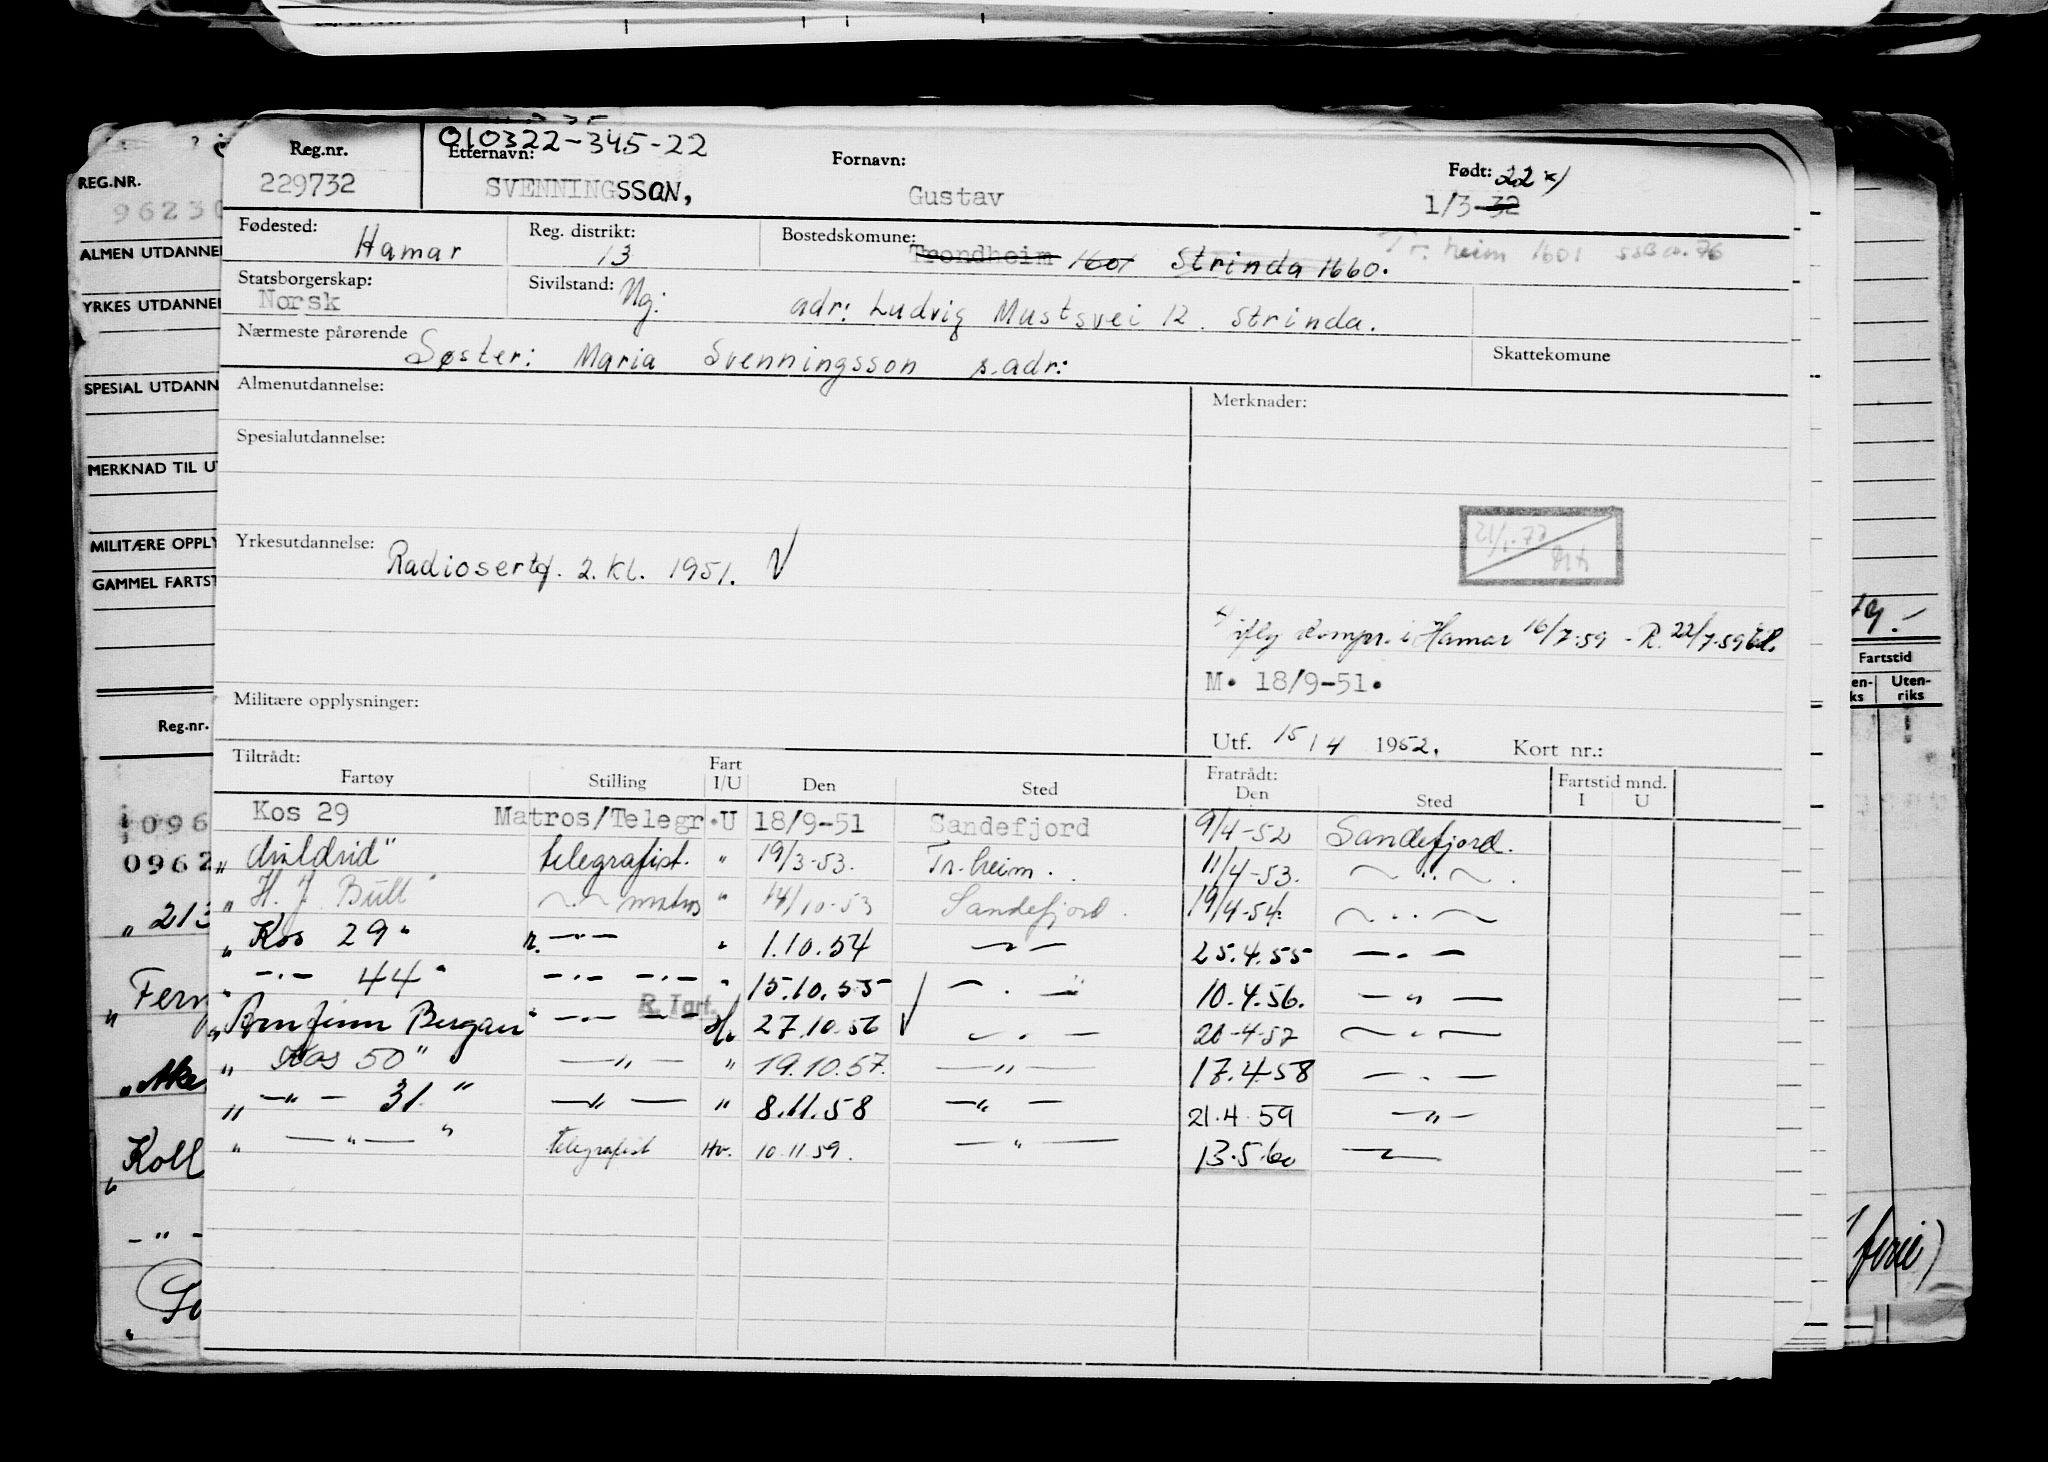 010322-345-22
Reg.nr. Etternavn: Fornavn: Født: 22 x)
229732 SVENNINGSSON, Gustav 1/3-32
Fødested: Hamar Reg. distrikt: 13 Bostedskomune: Trondheim 1601 Strinda 1660. Tr.heim 1601
Statsborgerskap: Norsk Sivilstand: Ug. adr: Ludvig Mustsvei 12. Strinda.
Nærmeste pårørende Søster: Maria Svenningsson s.adr: Skattekomune
Almenutdannelse: Merknader:
Spesialutdannelse:
Yrkesutdannelse: Radiosertf. 2. kl. 1951. V
x) iflg kompr. i Hamar 16/7-59 - R. 22/7-59
M. 18/9-51.
Militære opplysninger:
Utf. 15/4 1952. Kort nr.:
Tiltrådt: Fratrådt:
Fartøy Stilling Fart I/U Den Sted Den Sted Fartstid mnd. I U
Kos 29 Matros/Telegr. U 18/9-51 Sandefjord 9/4-52 Sandefjord.
telegrafist. " 19/3-53. Tr.heim. 11/4-53. ~ .. ~ .
" H. J. Bull " ~ . ~ matros " 14/10-53 Sandefjord. 19/4-54. ~ . . ~
" Kos 29 " —.— " 1.10.54 — — 25.4.55 — . —
" —.— 44 " —.— —.— " 15.10.55 — . — 10.4.56. — " —
R. Tart.
" Arnfinn Bergan " —.— — — 27.10.56 — . — 20-4-57 ~ . ~
" Kos 50 " — " — " 19.10.57. — " — 17.4.58 — . —
" — " — 31 " — " — " 8.11.58 — " — 21.4.59 — " —
" — " — " telegrafist Hv. 10.11.59. — " — 13.5.60 — —
REG.NR.
ALMEN UTDANNE
YRKES UTDANNE
SPESIAL UTDANN
MERKNAD TIL U
MILITÆRE OPPLY
GAMMEL FARTST
Reg.nr.
096
0962
" 213
" Fern
" Koll
- " -
Fartstid
Uten-
riks